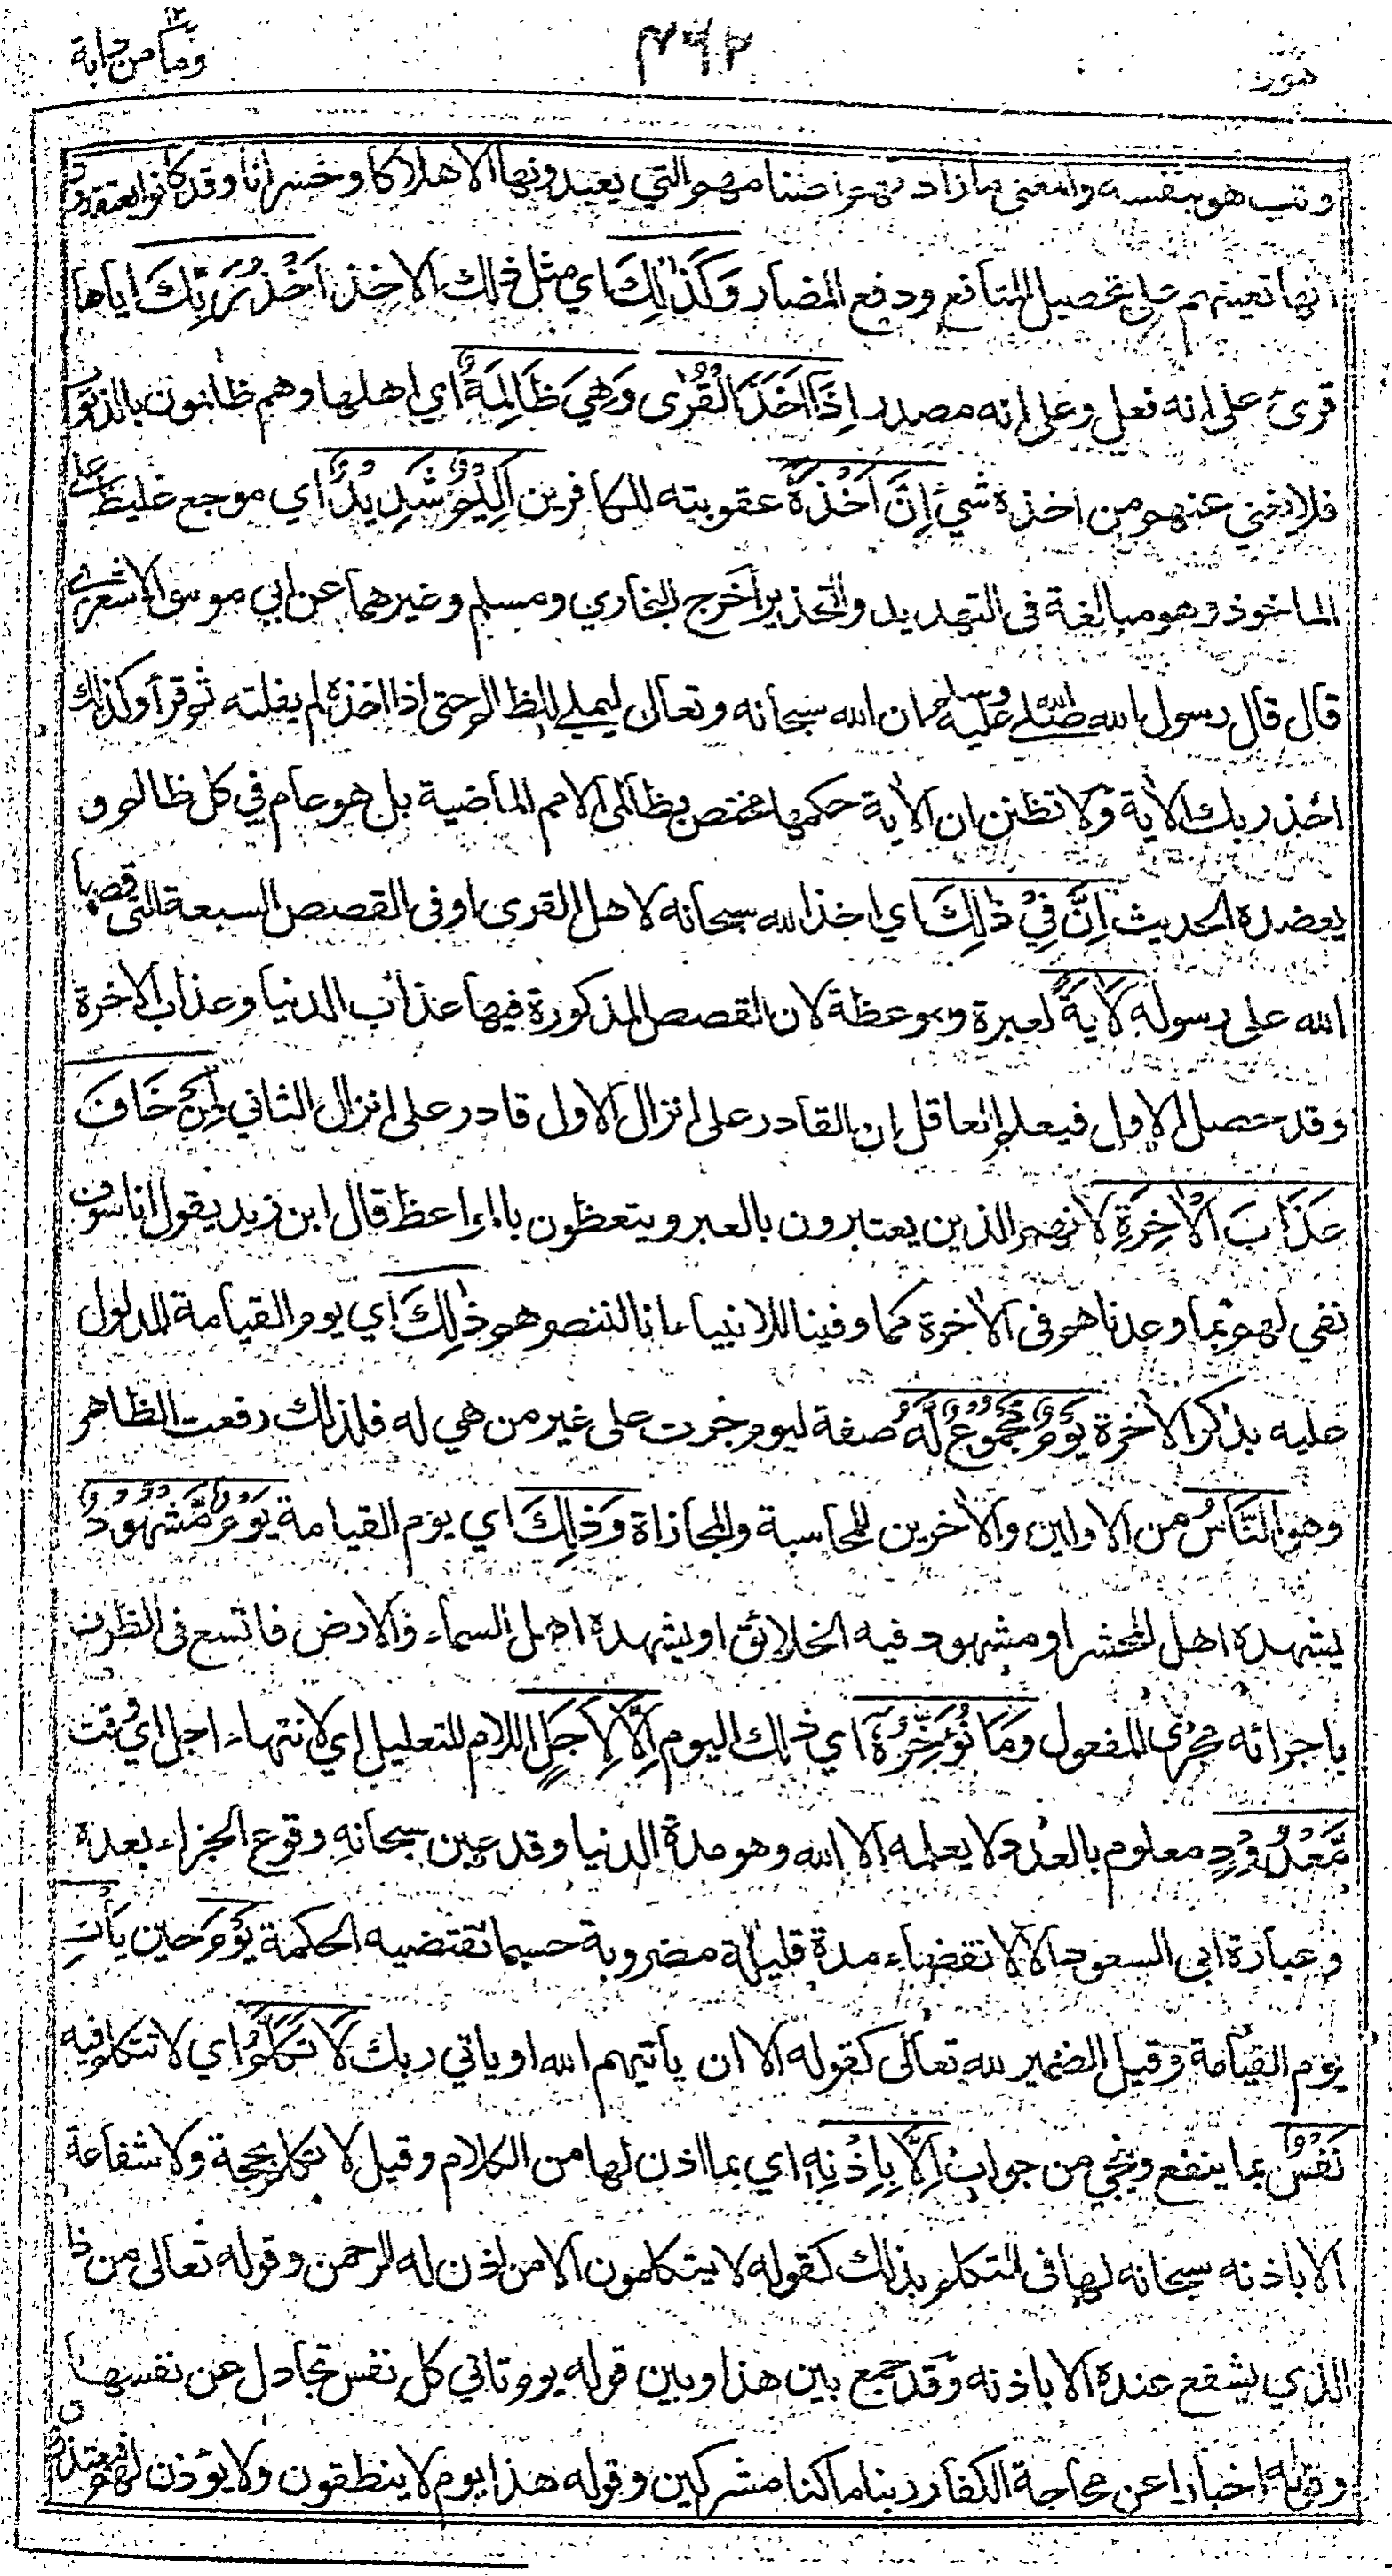 هود ٤٦٢ وما من دابة ١٢
وتب هو بنفسه والمعنى ما زادتهم اصنامهم التي يعبدونها الا هلاكا وخسرانا وقد كانوا يعتقدون
انها تعينهم على تحصيل المنافع ودفع المضار وَكَذٰلِكَ اي مثل ذلك الاخذ اَخْذُ رَبِّكَ اياها
قرئ على انه فعل وعلى انه مصدر اِذَآ اَخَذَ الْقُرٰى وَهِيَ ظَالِمَةٌ اي اهلها وهم ظالمون بالذنوب
فلا يغني عنهم من اخذه شيء اِنَّ اَخْذَهٗ عقوبته للكافرين اَلِيْمٌ شَدِيْدٌ اي موجع غليظ على
الماخوذ وهو مبالغة في التهديد والتحذير أخرج البخاري ومسلم وغيرهما عن ابي موسى الاشعري
قال قال رسول الله صلى الله عليه وسلم ان الله سبحانه وتعالى ليملي للظالم حتى اذا اخذه لم يفلته ثم قرأ وكذلك
اخذ ربك الآية ولا تظنن ان الآية حكمها مختص بظالمي الامم الماضية بل هو عام في كل ظالم و
يعضده الحديث اِنَّ فِيْ ذٰلِكَ اي اخذ الله سبحانه لاهل القرى او في القصص السبعة التي قصها
الله على رسوله لَاٰيَةً لعبرة وموعظة لان القصص المذكورة فيها عذاب الدنيا وعذاب الاخرة
وقد حصل الاول فيعلم العاقل ان القادر على انزال الاول قادر على انزال الثاني لِّمَنْ خَافَ
عَذَابَ الْاٰخِرَةِ لانهم الذين يعتبرون بالعبر ويتعظون بالمواعظ قال ابن زيد يقول انا سوف
نفي لهم بما وعدناهم في الآخرة كما وفينا للانبياء انا لننصرهم ذٰلِكَ اي يوم القيامة المدلول
عليه بذكر الآخرة يَوْمٌ مَّجْمُوْعٌ لَّهُ صفة ليوم جرت على غير من هي له فلذلك رفعت الظاهر
وهو النَّاسُ من الاولين والآخرين للمحاسبة والمجازاة وَذٰلِكَ اي يوم القيامة يَوْمٌ مَّشْهُوْدٌ
يشهده اهل المحشر او مشهود فيه الخلائق او يشهده اهل السماء والارض فاتسع في الظرف
باجرائه مجرى المفعول وَمَا نُؤَخِّرُهٗٓ اي ذلك اليوم اِلَّا لِاَجَلٍ اللام للتعليل اي لانتهاء اجل اي وقت
مَّعْدُوْدٍ معلوم بالعدد لا يعلمه الا الله وهو مدة الدنيا وقد عين سبحانه وقوع الجزاء بعده
وعبارة ابي السعود الا لانقضاء مدة قليلة مضروبة حسبما تقتضيه الحكمة يَوْمَ حين يَأْتِ
يوم القيامة وقيل الضمير لله تعالى كقوله الا ان ياتيهم الله او ياتي ربك لَا تَكَلَّمُ اي لا تتكلم فيه
نَفْسٌ بما ينفع وينجي من جواب اِلَّا بِاِذْنِهٖ اي بما اذن لها من الكلام وقيل لا تكلم بحجة ولا شفاعة
الا باذنه سبحانه لها في التكلم بذلك كقوله لا يتكلمون الا من اذن له الرحمن وقوله تعالى من ذا
الذي يشفع عنده الا باذنه وقد جمع بين هذا وبين قوله يوم تاتي كل نفس تجادل عن نفسها
وقوله اخبارا عن محاجة الكفار ربنا ما كنا مشركين وقوله هذا يوم لا ينطقون ولا يؤذن لهم فيعتذرون